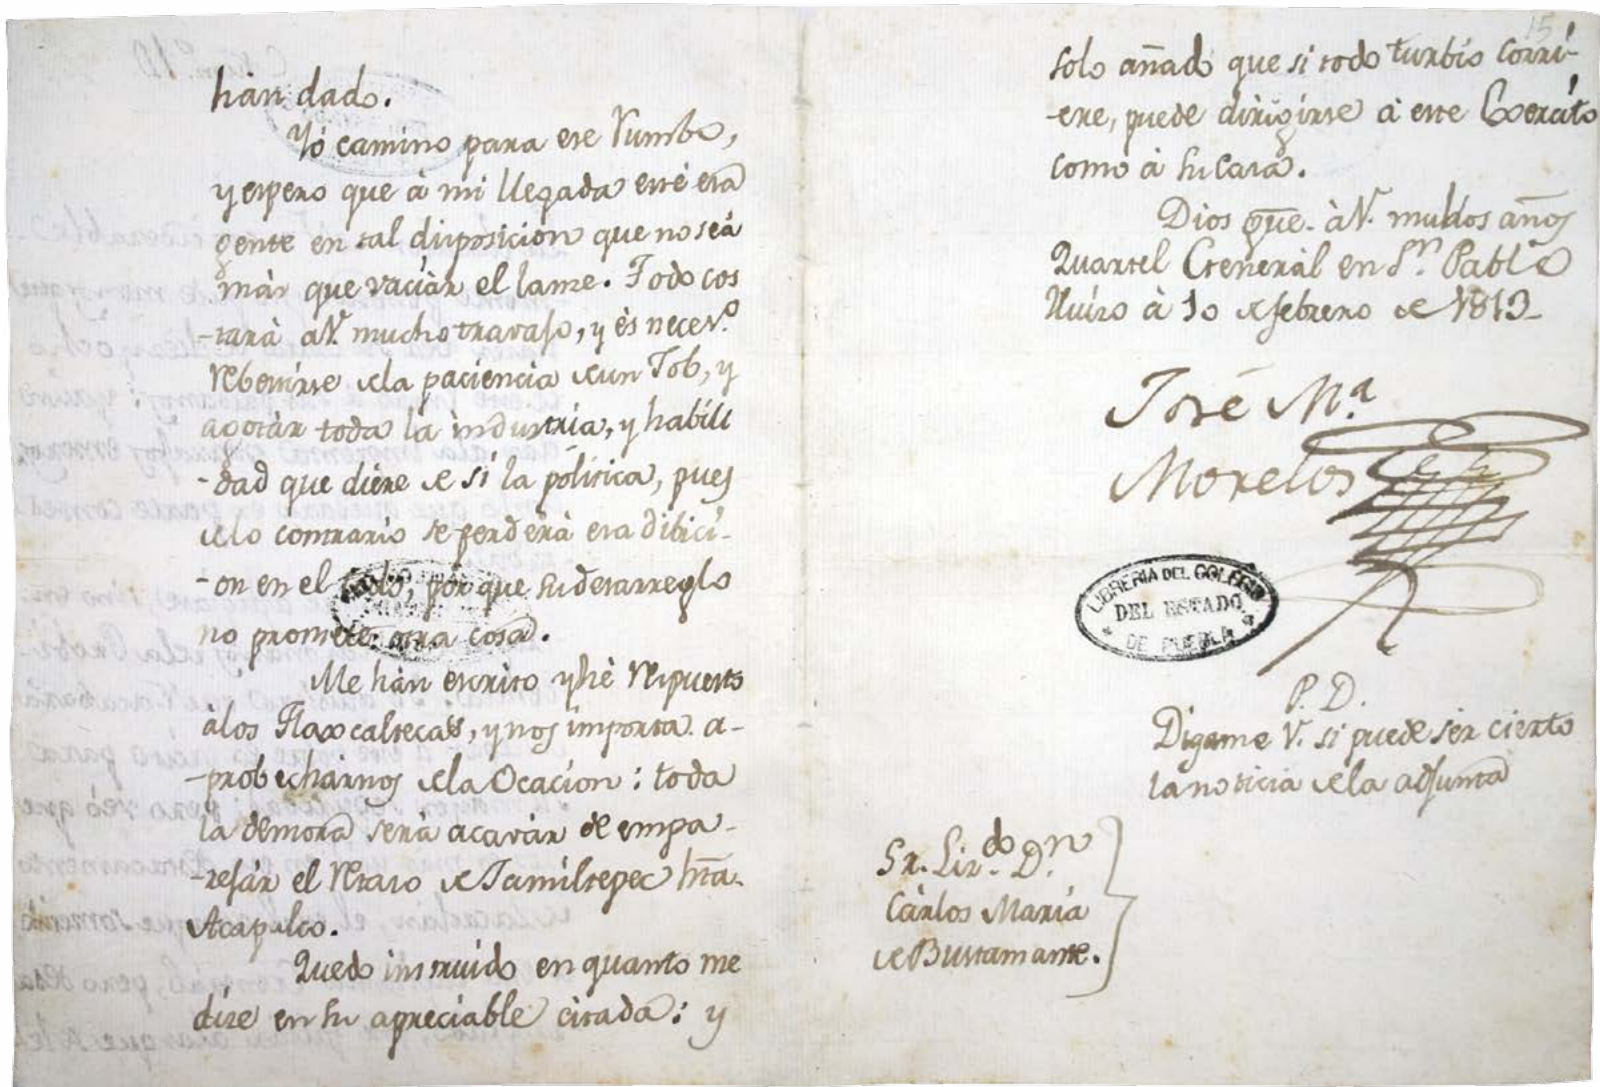 han dado.
Yó camino para ese Rumbo,
y espero que à mi llegada esté esa
gente en tal disposicion que no seá
más que vaciár el lanse. Todo cos
-tará a V. mucho travajo, y és neces.º
rebestirse de la paciencia de un Job, y
agotár toda la industria, y habili
-dad que diere de sí la política, pues
de lo contrario se perderá esa dibici-
-on en el todo, por que su desarreglo
no promete otra cosa.
Me hán escrito y hé respuesto
á los Tlaxcaltecas, y nos importa a-
-probechárnos de la Ocacion: toda
la demora será acavár de empa-
-rejár el Retaso de Jamiltepec hta.
Acapulco.
Quedo instruido en quanto me
dise en su apreciable citada: y
15
solo añado que si todo turbio corri-
-ere, puede dirigirse á este Exercito
como à su Casa.
Dios gue. à V. muchos años
Quartel General en Sn. Pablo
Huiso à 10 de febrero de 1813-
José Ma.
Morelos
LIBRERIA DEL COLEGIO
DEL ESTADO
DE PUEBLA
P. D.
Digame V. si puede sér cierto
la noticia de la adjunta
Sr. Lizdo. Dn.
Cárlos María
de Bustamante.